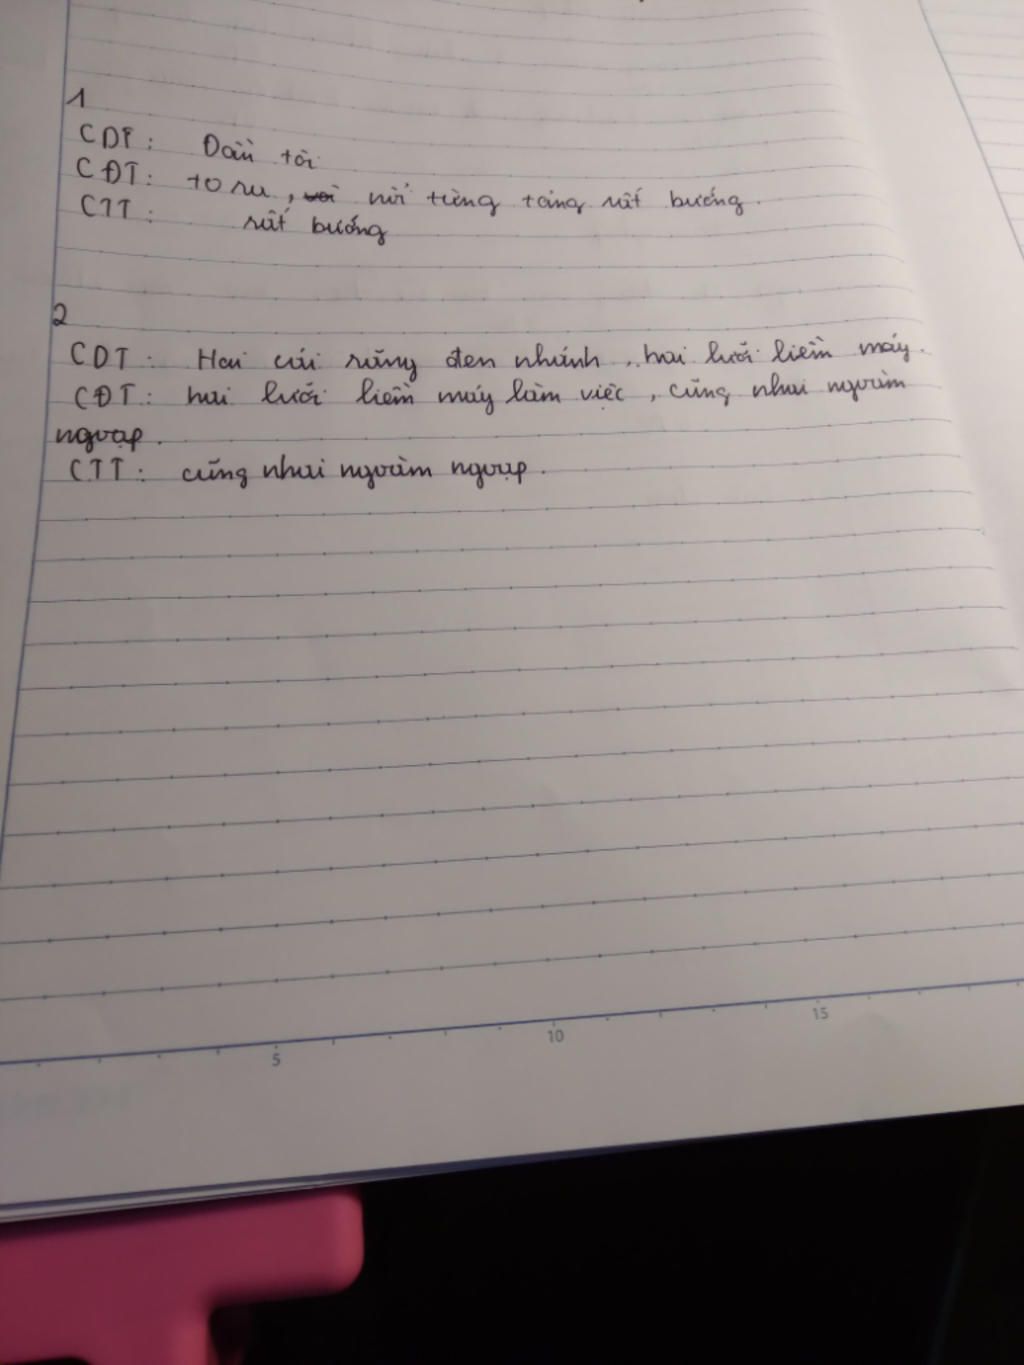 1
CDT: Đầu tôi
CĐT: to ra, nổi từng tảng rất bướng.
CTT: rất bướng
2
CDT: Hai cái răng đen nhánh .. hai lưỡi liềm máy.
CĐT: hai lưỡi liềm máy làm việc, cũng nhai ngoàm
ngoạp.
CTT: cũng nhai ngoàm ngoạp.
5
10
15